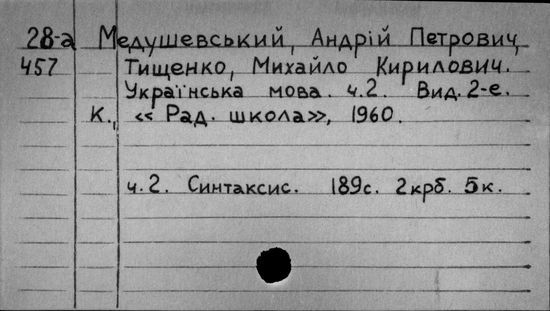 28-а Медушевський, Андрій Петрович,
457 Тищенко, Михайло Кирилович.
Українська мова. ч.2. Вид. 2-е.
К., «Рад. школа», 1960.
ч.2. Синтаксис. 189с. 2крб. 5к.